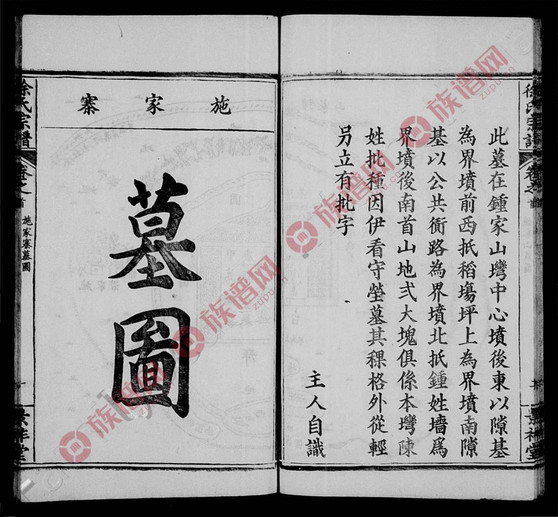 徐氏宗譜
卷之首
此墓在鍾家山灣中心墳後東以隙基
為界墳前西抵稻塲坪上為界墳南隙
基以公共衝路為界墳北抵鍾姓墻為
界墳後南首山地弍大塊俱係本灣陳
姓批種因伊看守塋墓其稞格外從輕
另立有批字
主人自識
施家寨
墓圖
徐氏宗譜
卷之首
施家寨墓圖
族谱网
zupu.cn